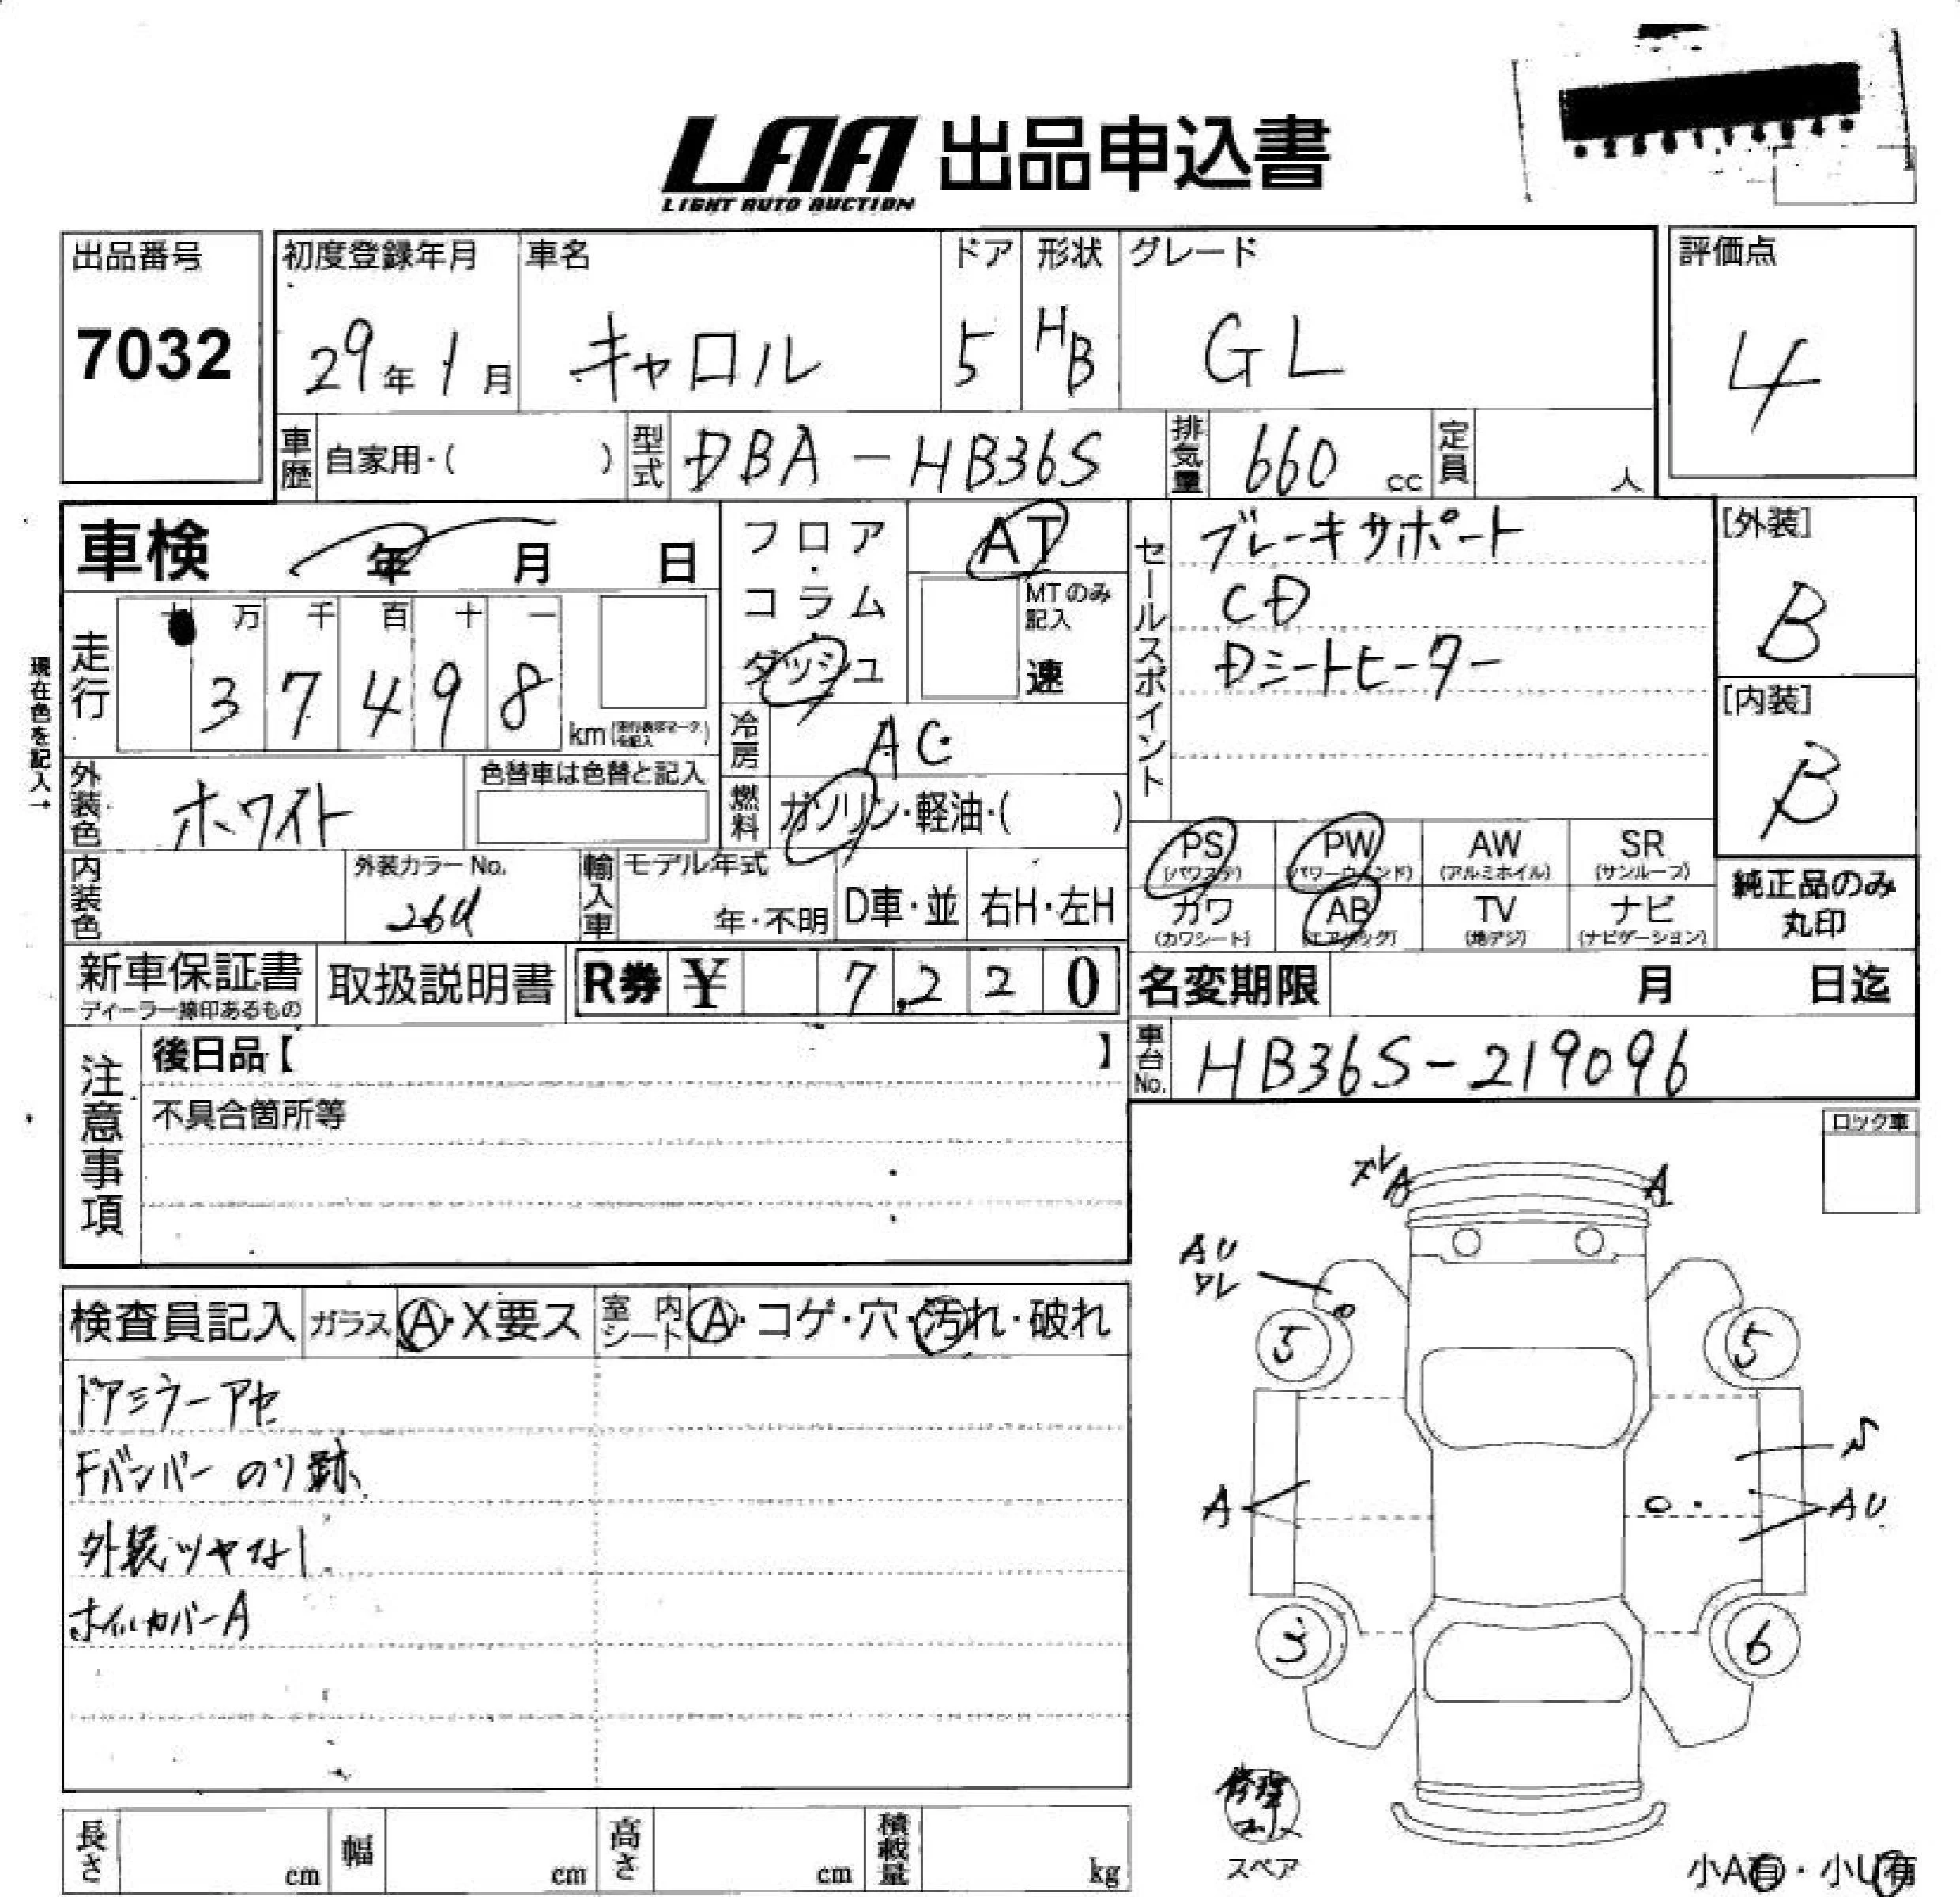 LAA 出品申込書
LIGHT AUTO AUCTION
出品番号
7032
初度登録年月
29年1月
車名
キャロル
ドア
5
形状
HB
グレード
GL
評価点
4
車歴 自家用・( )
型式 DBA-HB36S
排気量 660 cc
定員 人
車検 年 月 日
フロア・コラム・ダッシュ
AT
MTのみ記入
速
走行
十 万 千 百 十 一
3 7 4 9 8
km
現在色を記入→
冷房 AC
燃料 ガソリン・軽油・( )
外装色 ホワイト
色替車は色替と記入
内装色
外装カラーNo.
26U
輸入車
モデル年式
年・不明
D車・並
右H・左H
セールスポイント
ブレーキサポート
CD
Dシートヒーター
[外装]
B
[内装]
B
PS (パワステ)
PW (パワーウインド)
AW (アルミホイル)
SR (サンルーフ)
カワ (カワシート)
AB (エアバッグ)
TV (地デジ)
ナビ (ナビゲーション)
純正品のみ
丸印
新車保証書
ディーラー捺印あるもの
取扱説明書
R券 ¥ 7,220
名変期限 月 日迄
車台No. HB36S-219096
注意事項
後日品【 】
不具合箇所等
ロック車
検査員記入
ガラス A・X要ス
室内シート A・コゲ・穴・汚れ・破れ
ドアミラーアセ
Fバンパーのり跡
外装ツヤなし
ホイルカバーA
ズレA
A
AU
ワレ
5
5
A
AU
3
6
修理
スペア
小A有・小U有
長さ cm
幅 cm
高さ cm
積載量 kg